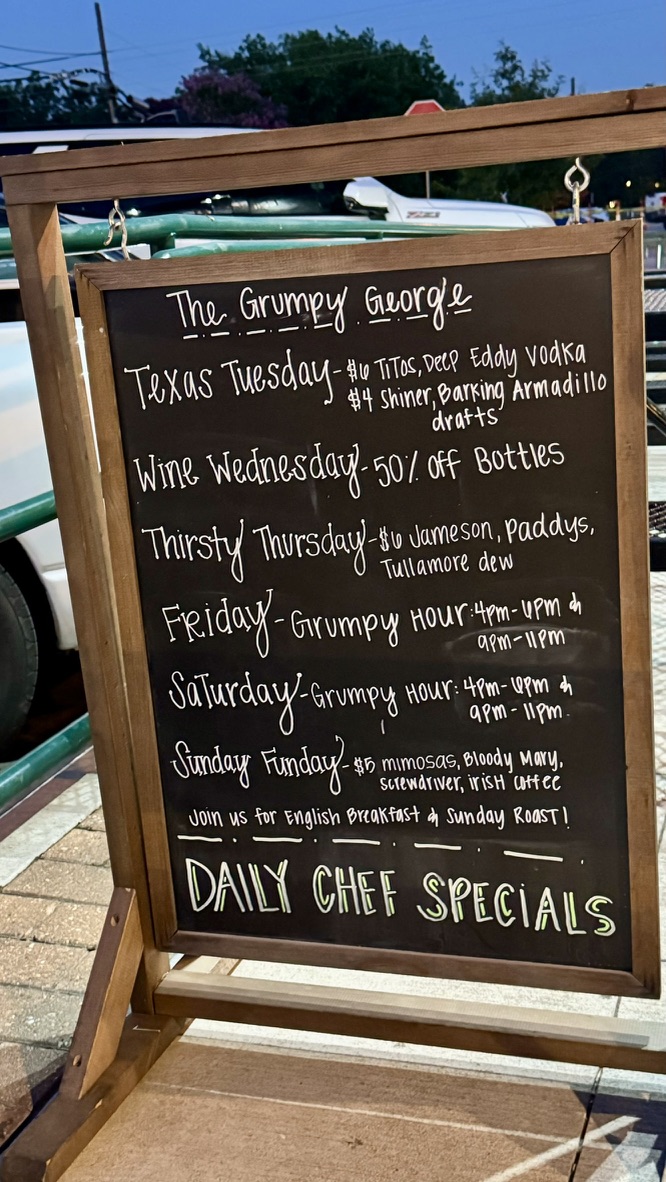 The Grumpy George
Texas Tuesday - $6 TiTos, Deep Eddy Vodka
$4 Shiner, Barking Armadillo
drafts
Wine Wednesday - 50% off Bottles
Thirsty Thursday - $6 Jameson, Paddys,
Tullamore dew
Friday - Grumpy Hour: 4pm-6pm &
9pm-11pm
Saturday - Grumpy Hour: 4pm-6pm &
9pm-11pm
Sunday Funday - $5 mimosas, Bloody Mary,
screwdriver, irish coffee
Join us for English Breakfast & Sunday Roast!
DAILY CHEF SPECIALS